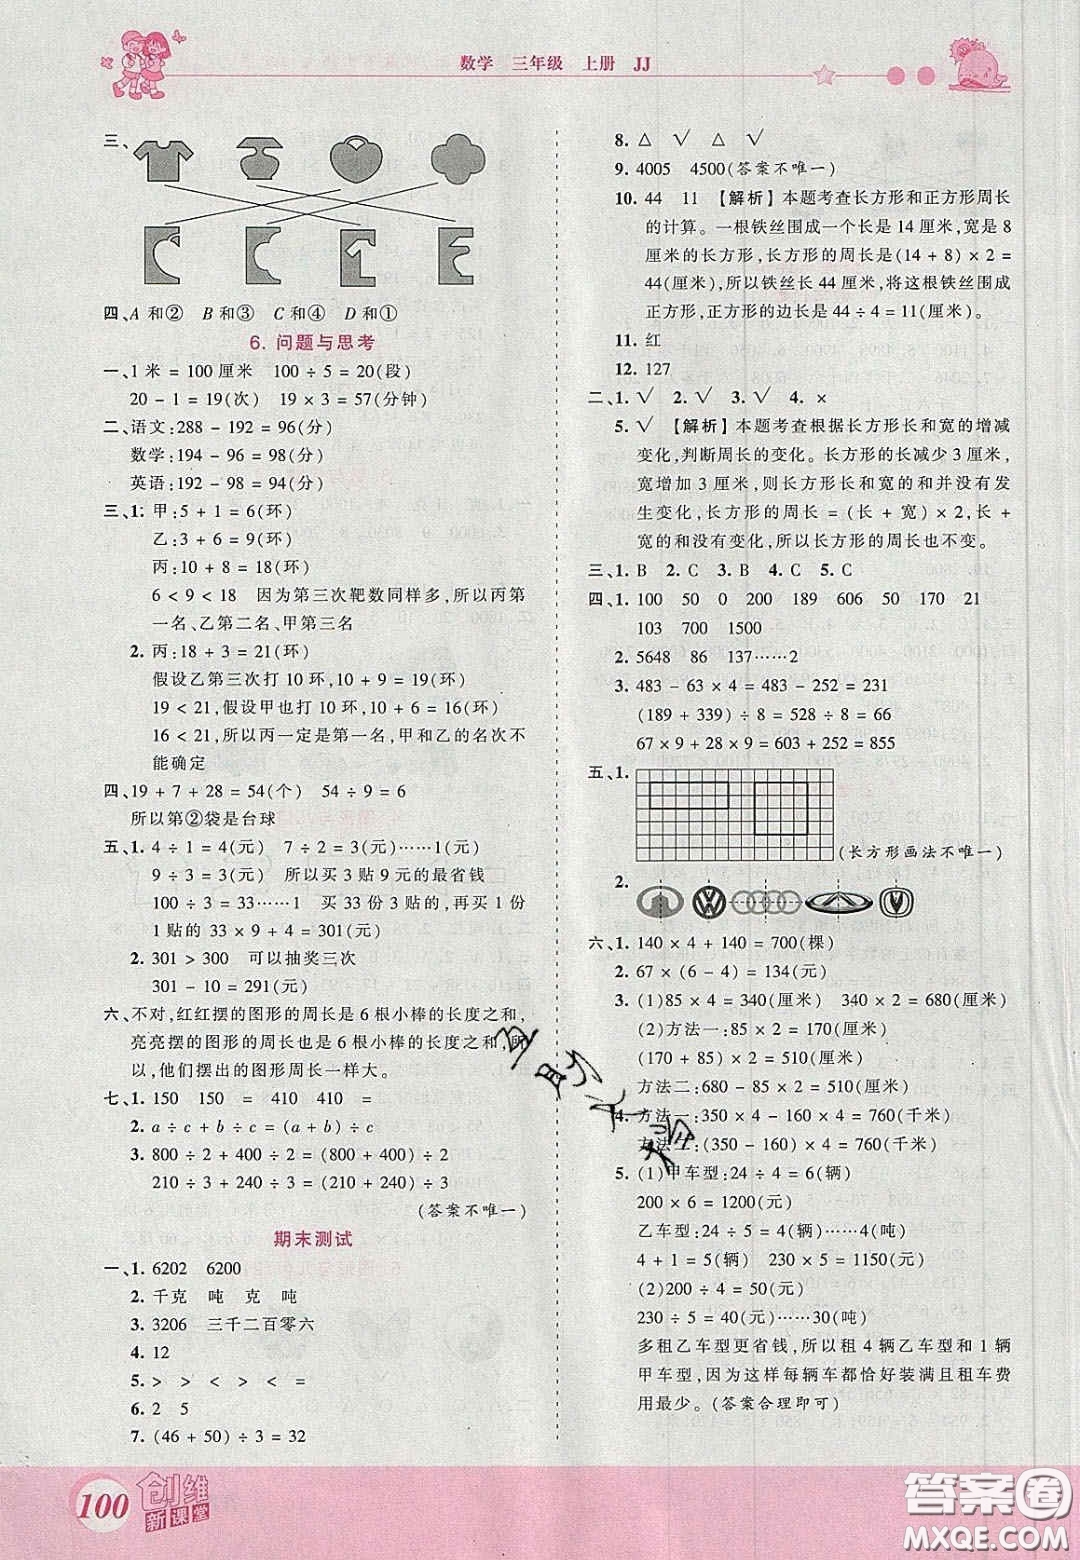 数学 三年级 上册 JJ
三、
四、A和② B和③ C和④ D和①
6. 问题与思考
一、1米=100厘米 100÷5=20(段)
20-1=19(次) 19×3=57(分钟)
二、语文:288-192=96(分)
数学:194-96=98(分)
英语:192-98=94(分)
三、1. 甲:5+1=6(环)
乙:3+6=9(环)
丙:10+8=18(环)
6<9<18 因为第三次靶数同样多,所以丙第
一名、乙第二名、甲第三名
2. 丙:18+3=21(环)
假设乙第三次打10环,10+9=19(环)
19<21,假设甲也打10环,10+6=16(环)
16<21,所以丙一定是第一名,甲和乙的名次不
能确定
四、19+7+28=54(个) 54÷9=6
所以第②袋是台球
五、1. 4÷1=4(元) 7÷2=3(元)……1(元)
9÷3=3(元) 所以买3贴9元的最省钱
100÷3=33……1 买33份3贴的,再买1份
1贴的 33×9+4=301(元)
2. 301>300 可以抽奖三次
301-10=291(元)
六、不对,红红摆的图形的周长是6根小棒的长度之和,
亮亮摆的图形的周长也是6根小棒的长度之和,所
以他们摆出的图形周长一样大。
七、1. 150 150 = 410 410 =
2. a÷c+b÷c=(a+b)÷c
3. 800÷2+400÷2=(800+400)÷2
210÷3+240÷3=(210+240)÷3
(答案不唯一)
期末测试
一、1. 6202 6200
2. 千克 吨 克 吨
3. 3206 三千二百零六
4. 12
5. > > > < > >
6. 2 5
7. (46+50)÷3=32
8. △ √ △ √
9. 4005 4500(答案不唯一)
10. 44 11 【解析】本题考查长方形和正方形周长
的计算。一根铁丝围成一个长是14厘米,宽是8
厘米的长方形,长方形的周长是(14+8)×2=
44(厘米),所以铁丝长44厘米,将这根铁丝围成
正方形,正方形的边长是44÷4=11(厘米)。
11. 红
12. 127
二、1. √ 2. √ 3. √ 4. ×
5. √ 【解析】本题考查根据长方形长和宽的增减
变化,判断周长的变化。长方形的长减少3厘米,
宽增加3厘米,则长方形长和宽的和并没有发
生变化,长方形的周长=(长+宽)×2,长+
宽的和没有变化,所以长方形的周长也不变。
三、1. B 2. C 3. B 4. C 5. C
四、1. 100 50 0 200 189 606 50 170 21
103 700 1500
2. 5648 86 137……2
3. 483-63×4=483-252=231
(189+339)÷8=528÷8=66
67×9+28×9=603+252=855
五、1.
(长方形画法不唯一)
2.
六、1. 140×4+140=700(棵)
2. 67×(6-4)=134(元)
3. (1)85×4=340(厘米) 340×2=680(厘米)
(2)方法一:85×2=170(厘米)
(170+85)×2=510(厘米)
方法二:680-85×2=510(厘米)
4. 方法一:350×4-160×4=760(千米)
方法二:(350-160)×4=760(千米)
5. (1)甲车型:24÷4=6(辆)
200×6=1200(元)
乙车型:24÷5=4(辆)……4(吨)
4+1=5(辆) 230×5=1150(元)
(2)200÷4=50(元)
230÷5=40(元)……30(吨)
多租乙车型更省钱,所以租4辆乙车型和1辆
甲车型,因为这样每辆车都恰好装满且租车费
用最少。(答案合理即可)
100 创维
新课堂
答案圈
MXQE.COM